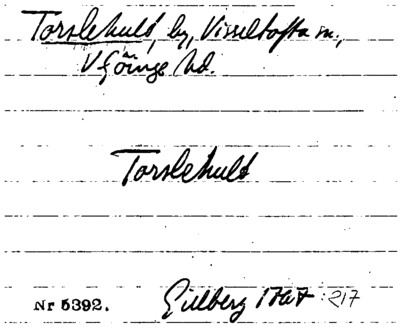 Torslehult, by, Visseltofta sn.,
V Göinge hd.
Torslehult
Nr 5392. Gillberg 1767 : 217